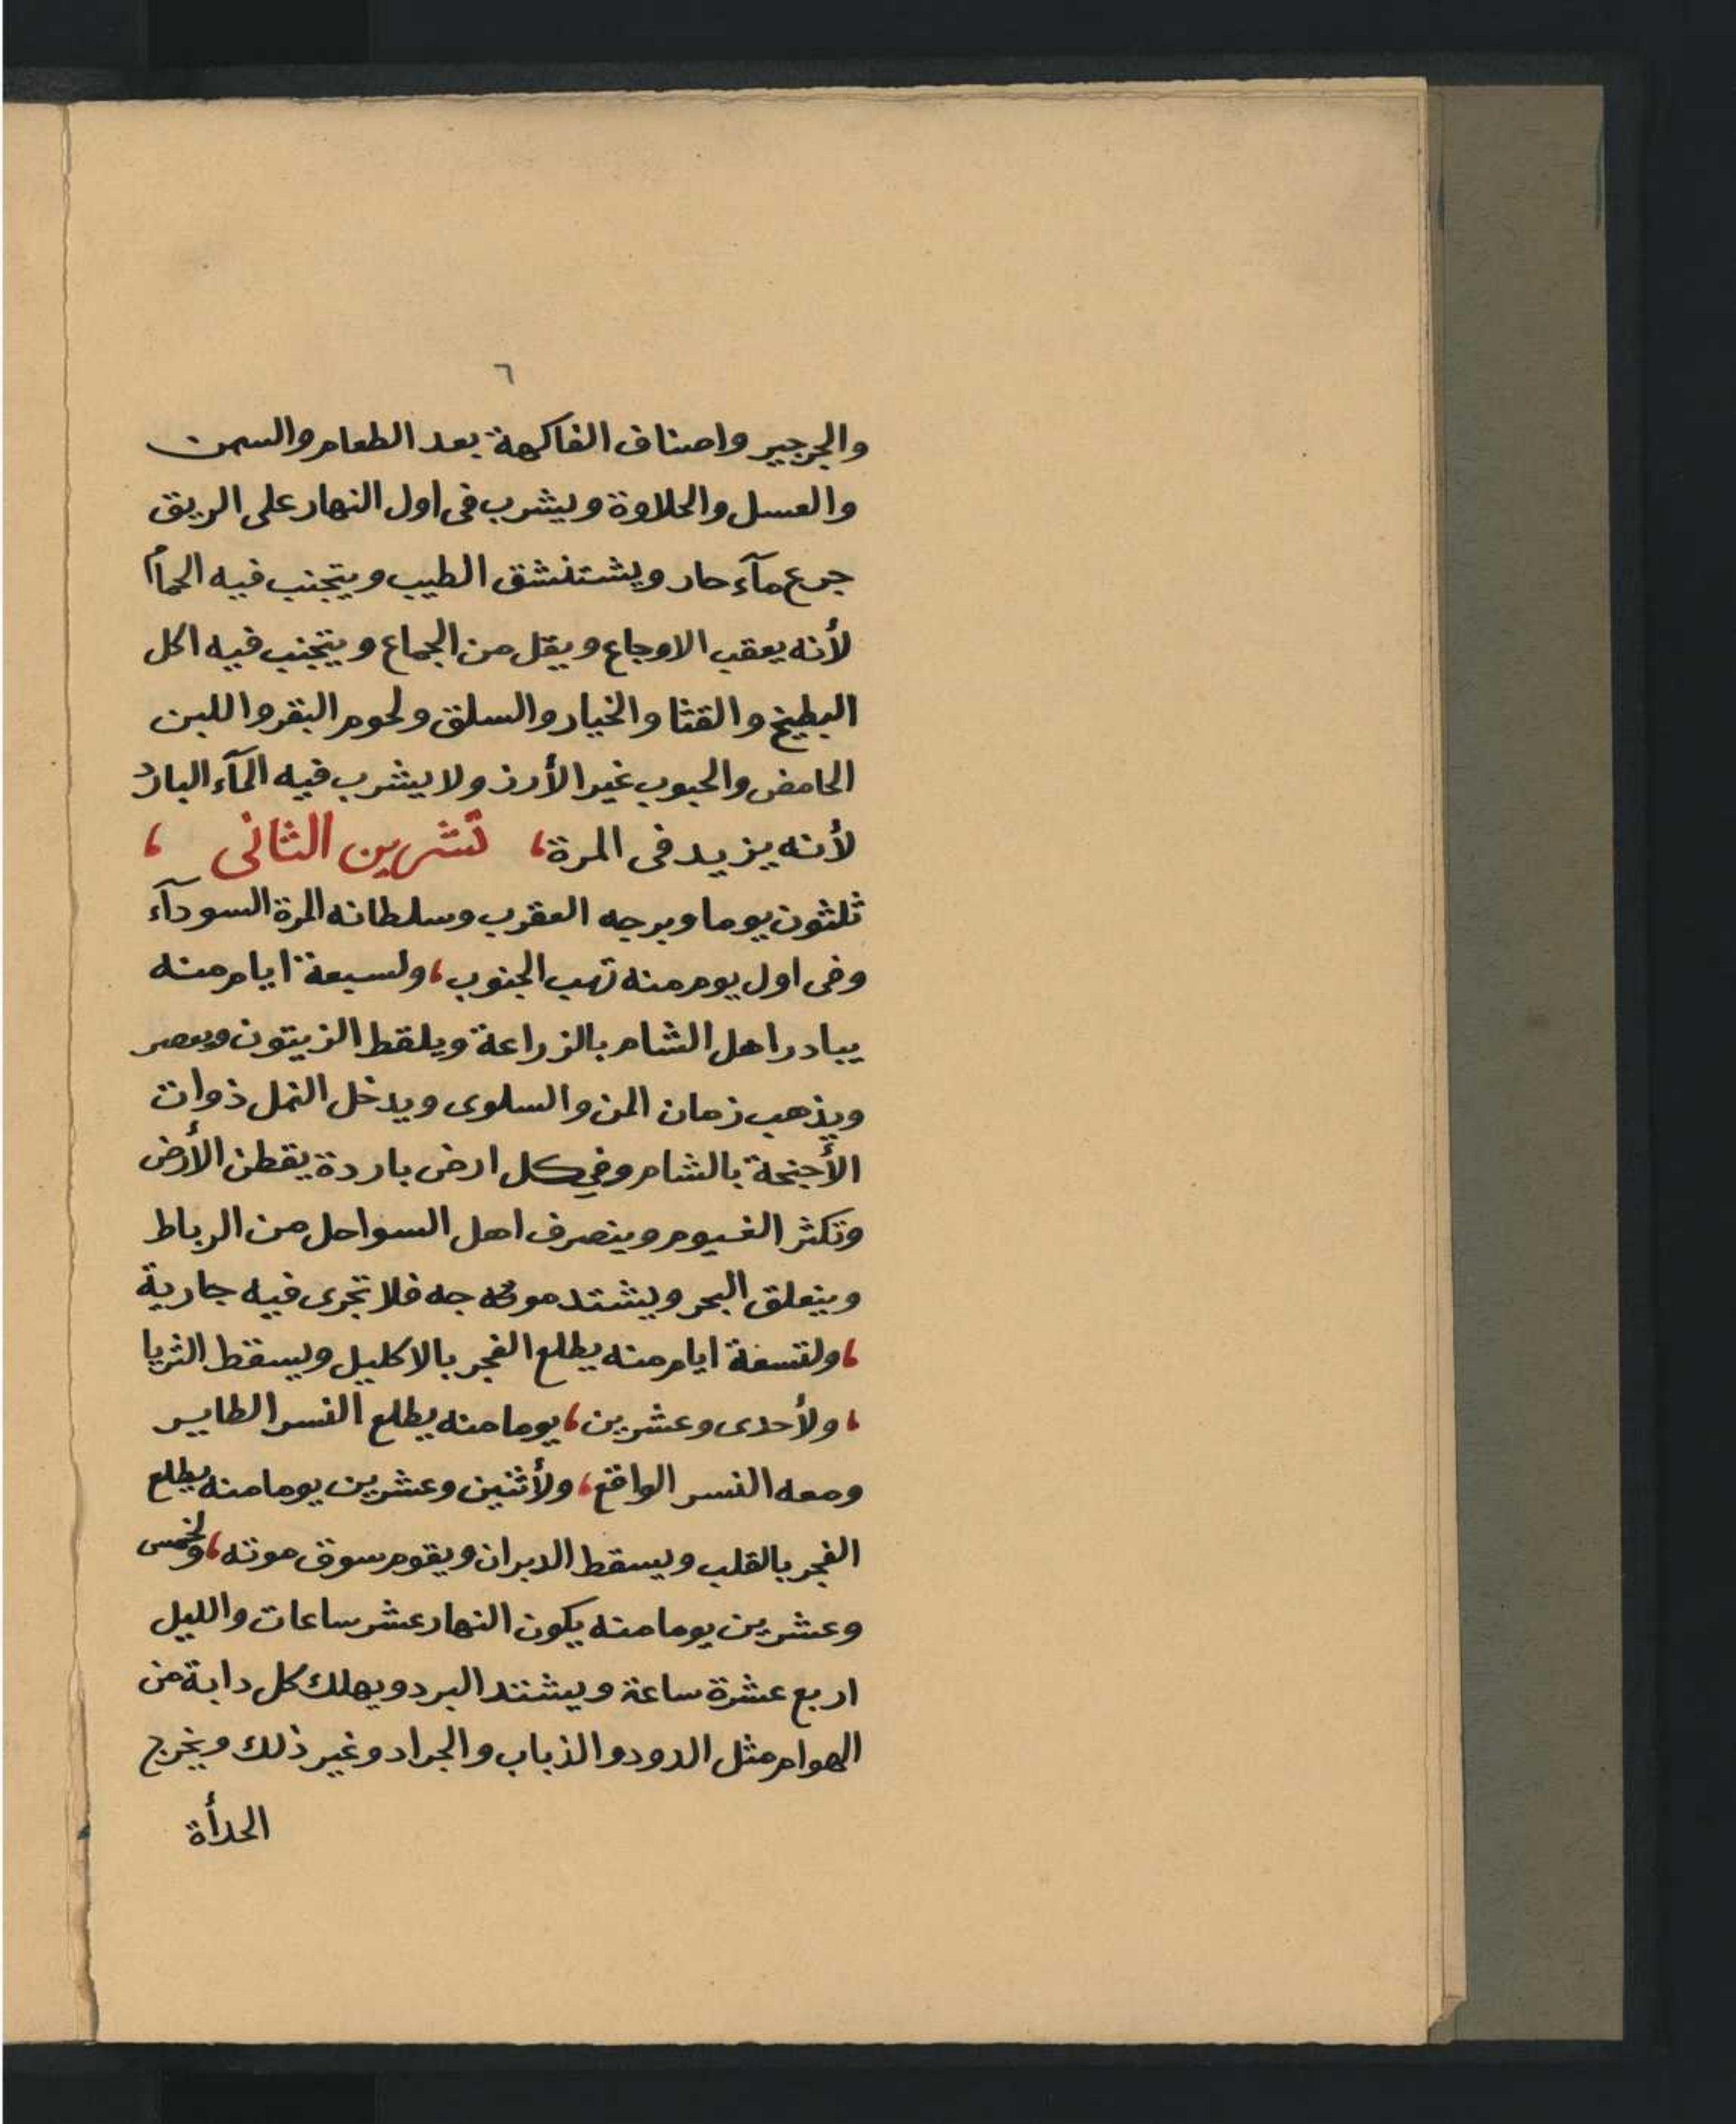 ٦
والجرجير واصناف الفاكهة بعد الطعام والسمن
والعسل والحلاوة ويشرب فى اول النهار على الريق
جرع مآء حار ويشتنشق الطيب ويتجنب فيه الحمام
لأنه يعقب الاوجاع ويقل من الجماع ويتجنب فيه اكل
البطيخ والقثا والخيار والسلق ولحوم البقر واللبن
الحامض والحبوب غير الأرز ولا يشرب فيه المآء البارد
لأنه يزيد فى المرة، تشرين الثانى ،
ثلثون يوما وبرجه العقرب وسلطانه المرة السودآء
وفى اول يوم منه تهب الجنوب، ولسبعة ايام منه
يبادر اهل الشام بالزراعة ويلقط الزيتون ويعصر
ويذهب زمان المن والسلوى ويدخل النمل ذوات
الأجنحة بالشام وفي كل ارض باردة يقطن الأرض
وتكثر الغيوم وينصرف اهل السواحل من الرباط
وينعلق البحر ويشتد جه فلا تجرى فيه جارية
، ولتسعة ايام منه يطلع الفجر بالاكليل ويسقط الثريا
، ولأحدى وعشرين، يوما منه يطلع النسر الطاير
ومعه النسر الواقع، ولأثنين وعشرين يوما منه يطلع
الفجر بالقلب ويسقط الدبران ويقوم سوق موته، ولخمس
وعشرين يوما منه يكون النهار عشر ساعات والليل
اربع عشرة ساعة ويشتد البرد ويهلك كل دابة من
الهوام مثل الدود والذباب والجراد وغير ذلك ويخرج
الحدأة